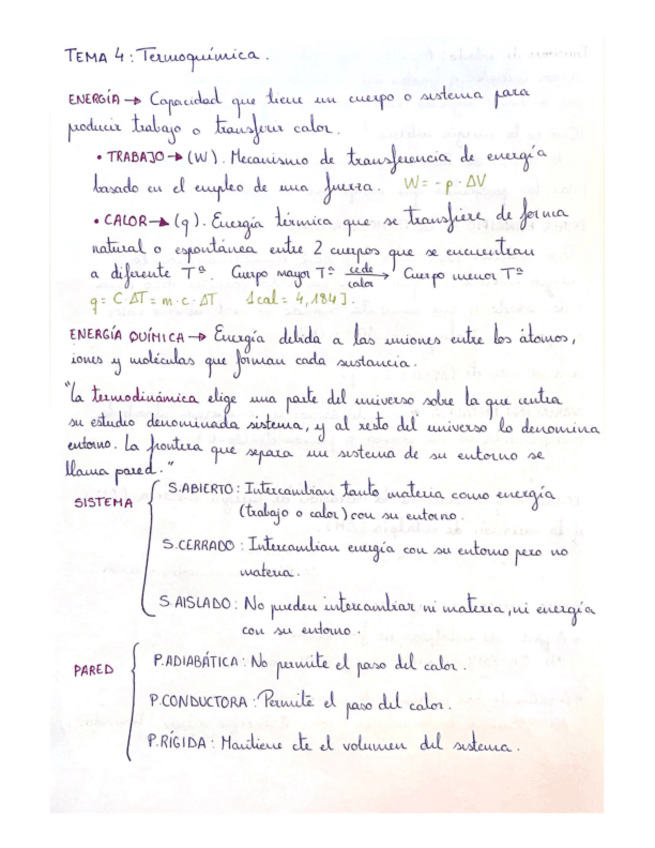 TEMA 4: Termoquímica.
ENERGÍA → Capacidad que tiene un cuerpo o sistema para
producir trabajo o transferir calor.
• TRABAJO → (W). Mecanismo de transferencia de energía
basado en el empleo de una fuerza. W = -p · ΔV
• CALOR → (q). Energía térmica que se transfiere de forma
natural o espontánea entre 2 cuerpos que se encuentran
a diferente Tª. Cuerpo mayor Tª cede calor → Cuerpo menor Tª
q = C·ΔT = m·c·ΔT 1cal = 4,184J.
ENERGÍA QUÍMICA → Energía debida a las uniones entre los átomos,
iones y moléculas que forman cada sustancia.
"la termodinámica elige una parte del universo sobre la que centra
su estudio denominada sistema, y al resto del universo lo denomina
entorno. La frontera que separa un sistema de su entorno se
llama pared."
SISTEMA
S.ABIERTO: Intercambian tanto materia como energía
(trabajo o calor) con su entorno.
S.CERRADO: Intercambian energía con su entorno pero no
materia.
S.AISLADO: No pueden intercambiar ni materia, ni energía
con su entorno.
PARED
P.ADIABÁTICA: No permite el paso del calor.
P.CONDUCTORA: Permite el paso del calor.
P.RÍGIDA: Mantiene cte el volumen del sistema.